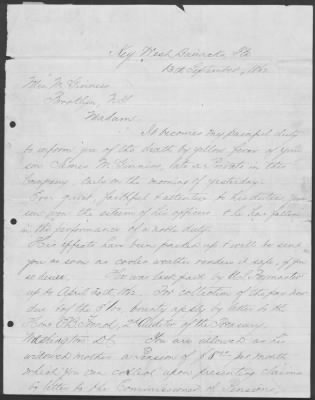 Key West Barracks, Fla
13th September, 1862
Mrs. M. Ginniss
Brooklyn, N.Y.
Madam
It becomes my painful duty
to inform you of the death by yellow fever of your
son James M. Ginniss, late a Private in this
Company, early on the morning of yesterday.
Ever quiet, faithful & attentive to his duties, your
son won the esteem of his officers & he has fallen
in the performance of a noble duty.
His effects have been packed up & will be sent
you as soon as cooler weather renders it safe, if you
so desire. He was last paid by U.S. Paymaster
up to April 30th, 1862. For collection of the pay now
due & for the bounty apply by letter to the
Hon. 2nd Auditor of the Treasury,
Washington D.C. You are allowed as his
widowed mother a Pension of $8 00 per month
which you can upon presenting claims
by letter to the Commissioner of Pensions,